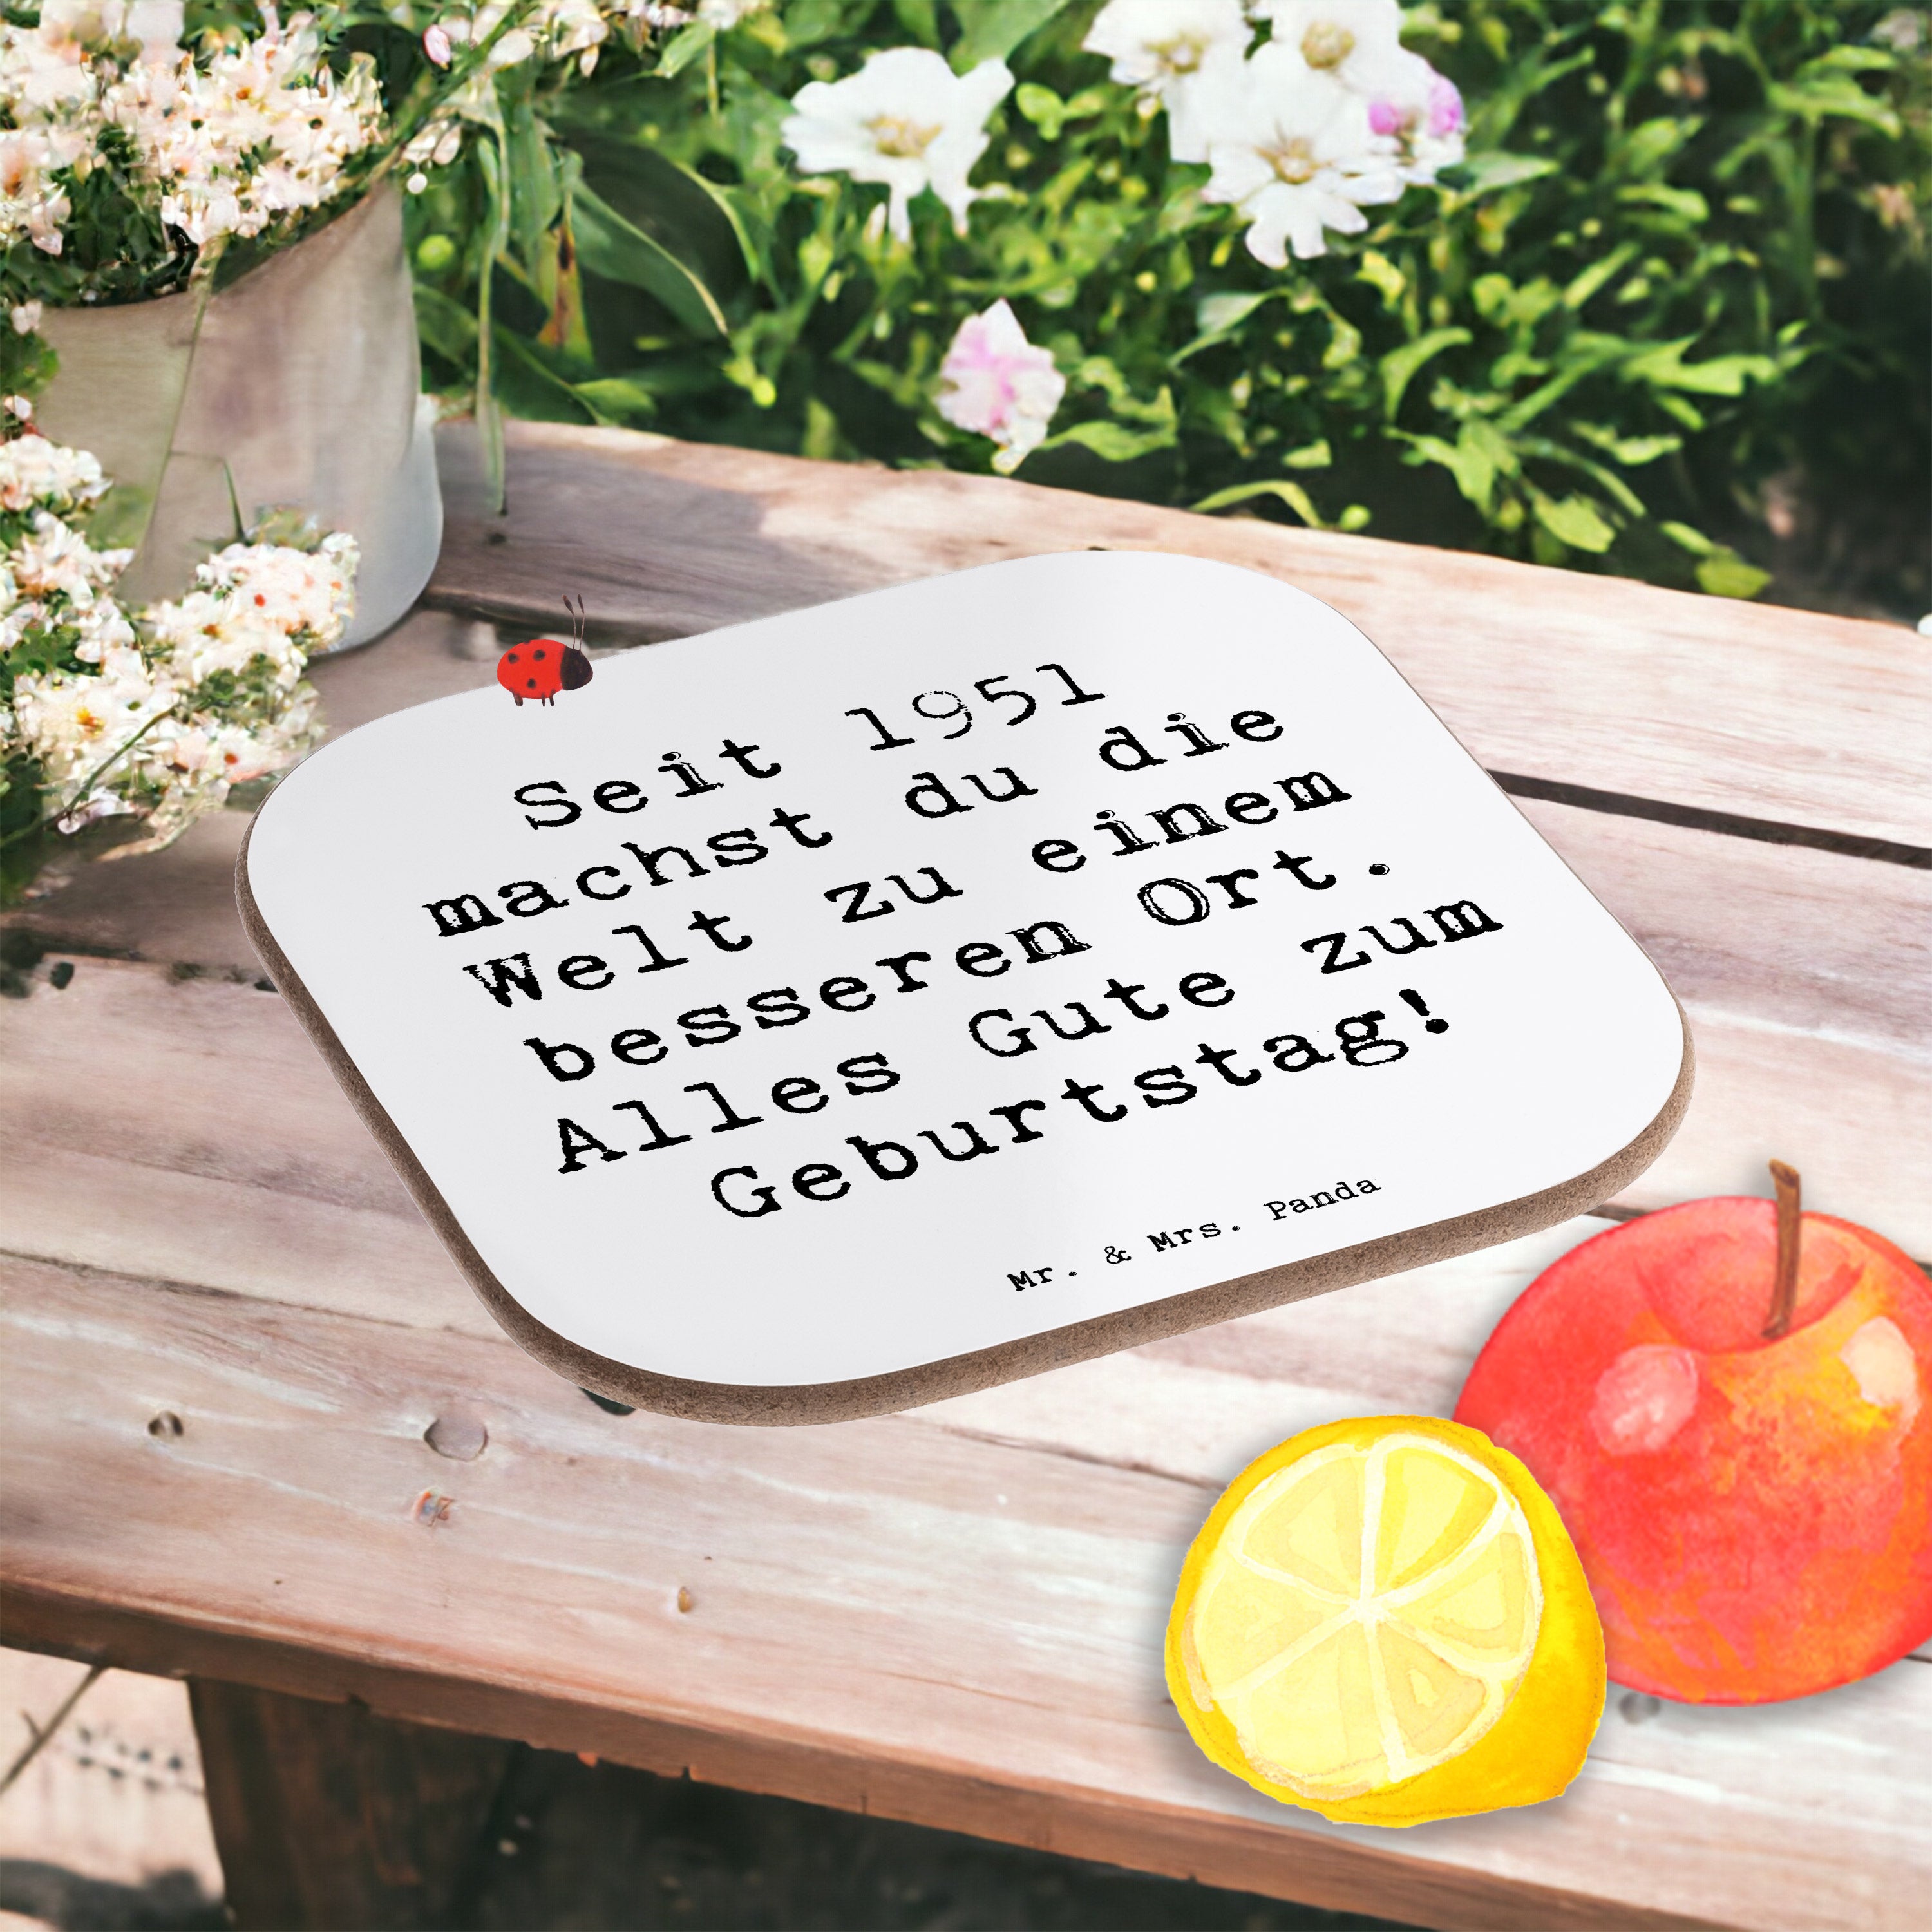 Seit 1951
machst du die
Welt zu einem
besseren Ort.
Alles Gute zum
Geburtstag!
Mr. & Mrs. Panda